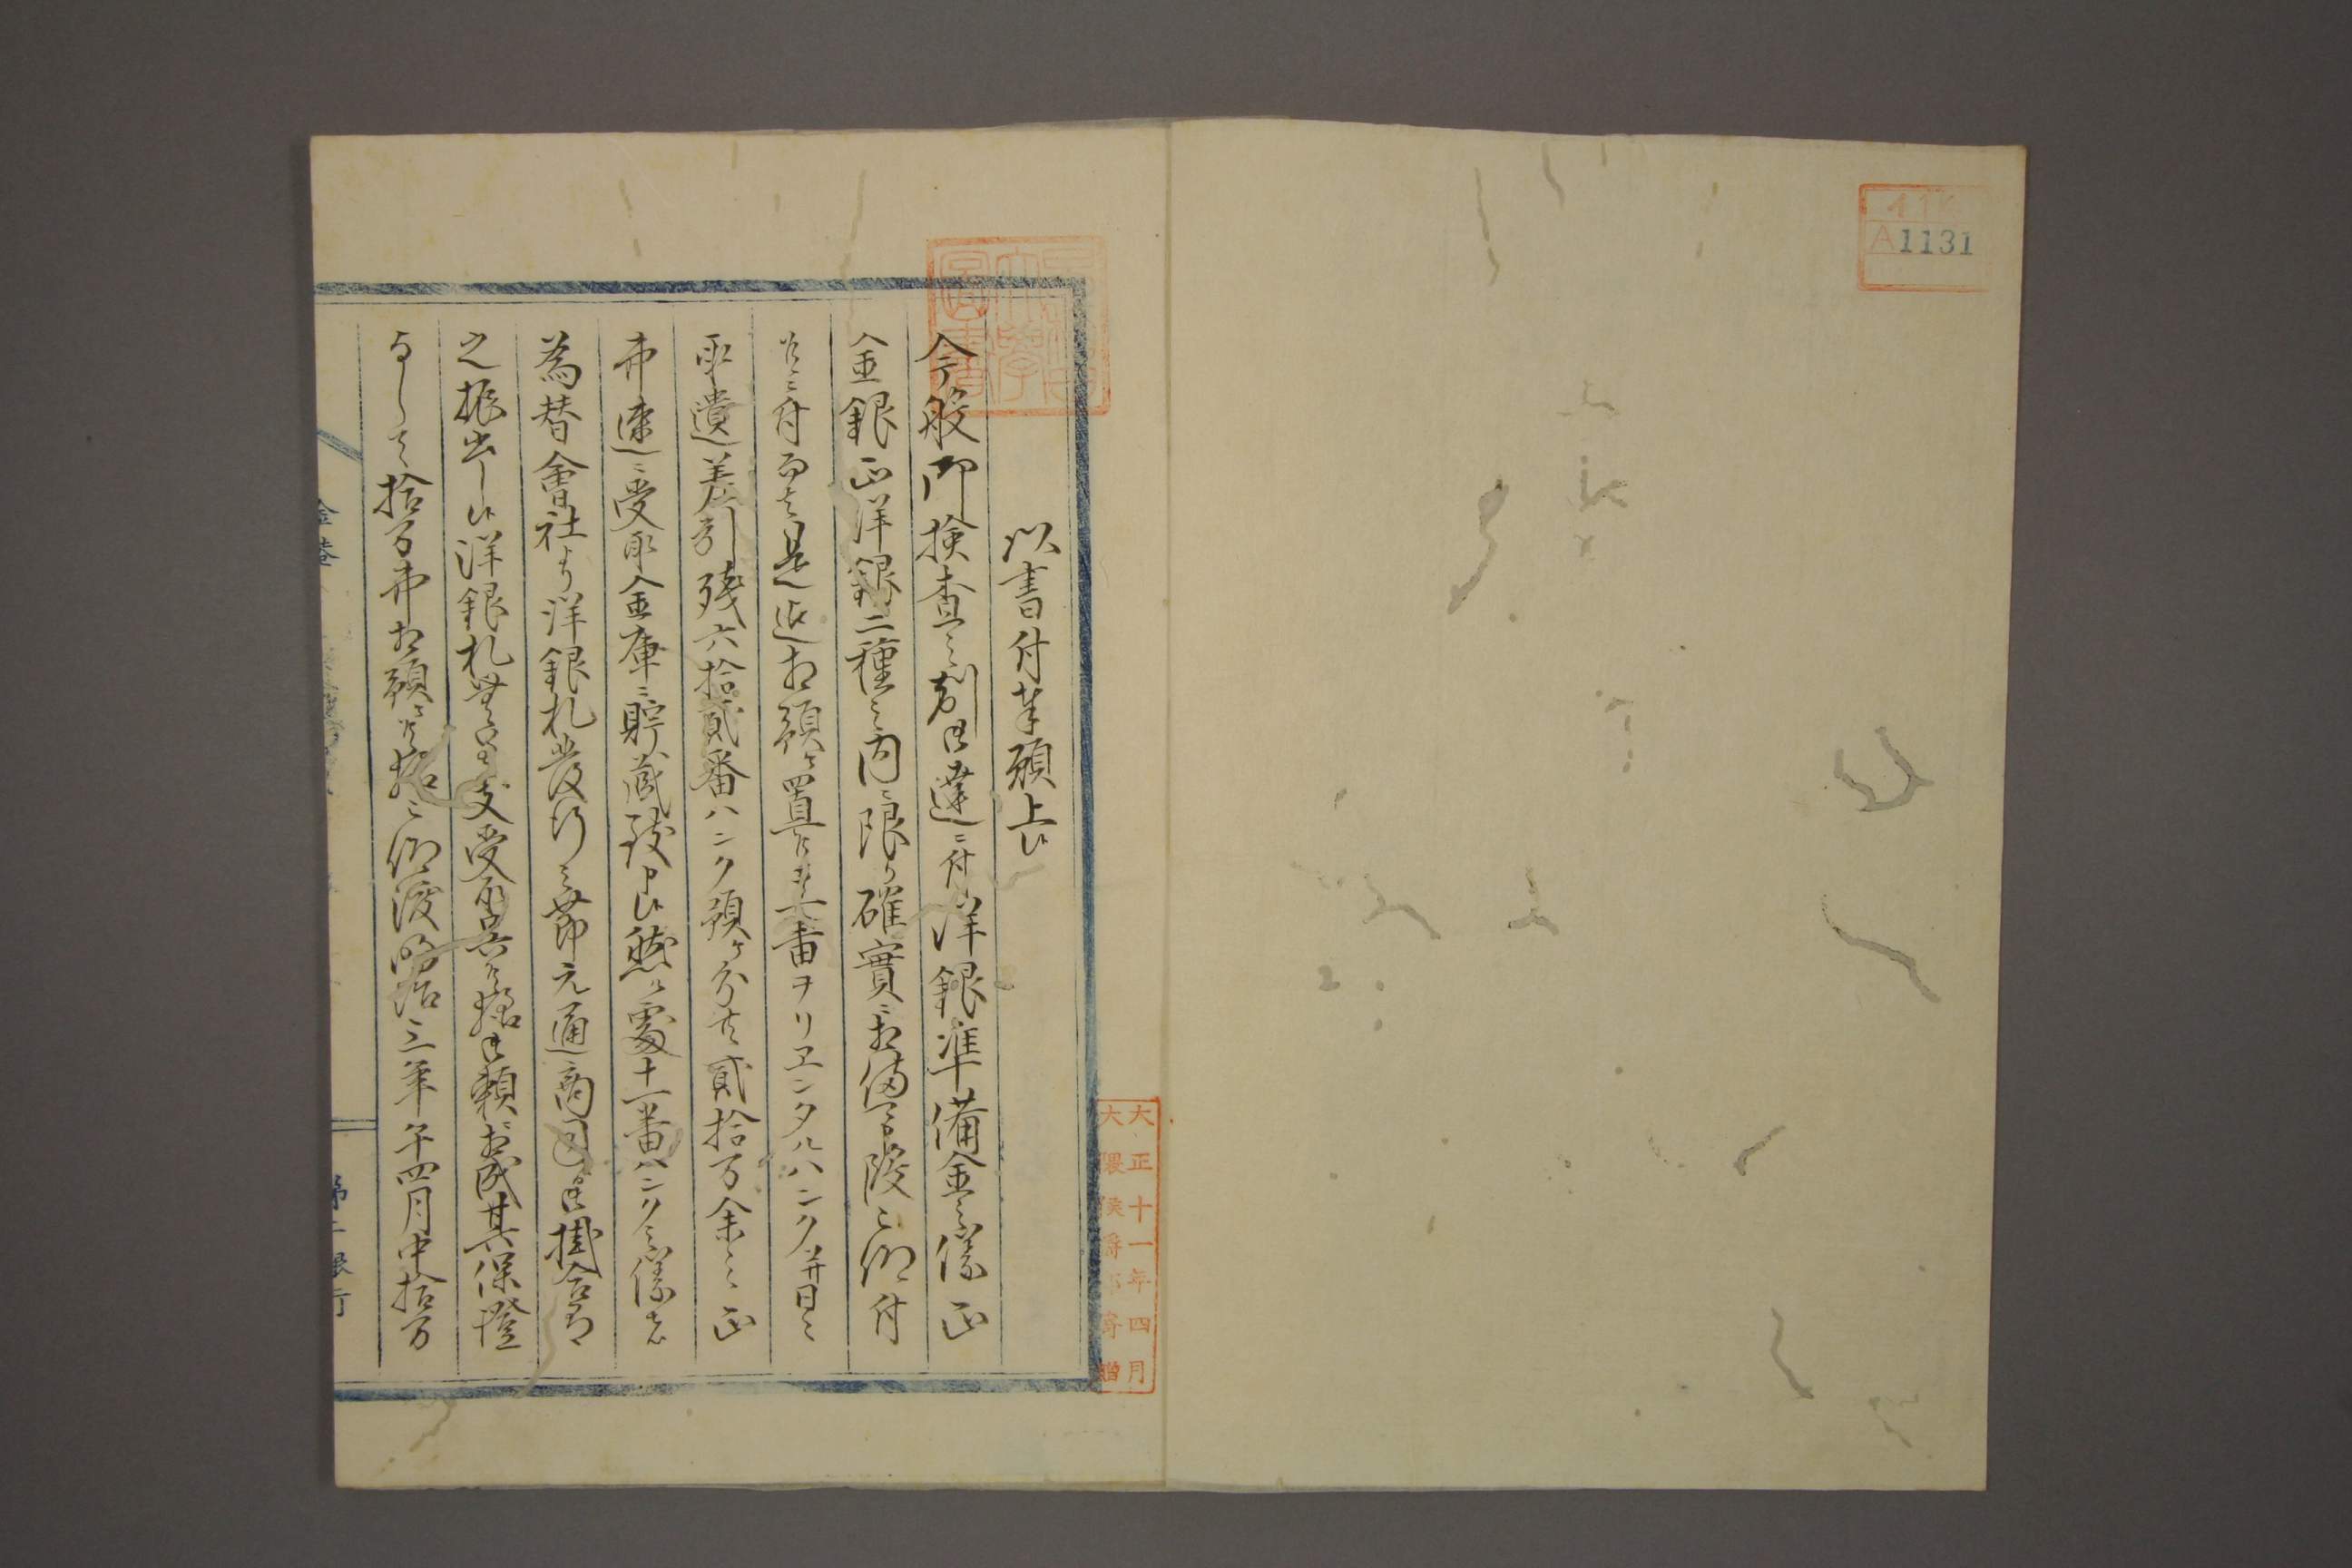 A1131
大正十一年四月
大隈侯爵家寄贈
以書付奉願上候
今般御検査之別ヨ達ニ付洋銀準備金之儀正
金銀正洋銀二種之内ニ限り確實ニ相備可段被仰付
候ニ付而者是迄相預ケ置候 番ヲリエンタルハンク并日々
取遣差引残六拾貳番ハンク預ケ分共貳拾万余之正
弗速ニ受取金庫ニ貯蔵致申候然ル處十一番ハンク之儀者
為替會社より洋銀札發行之節元通商司 掛合有
之振出し候洋銀札 支受取 頼談其保證
として拾万弗相預ケ候様被仰渡明治三年午四月中拾万
第二銀行